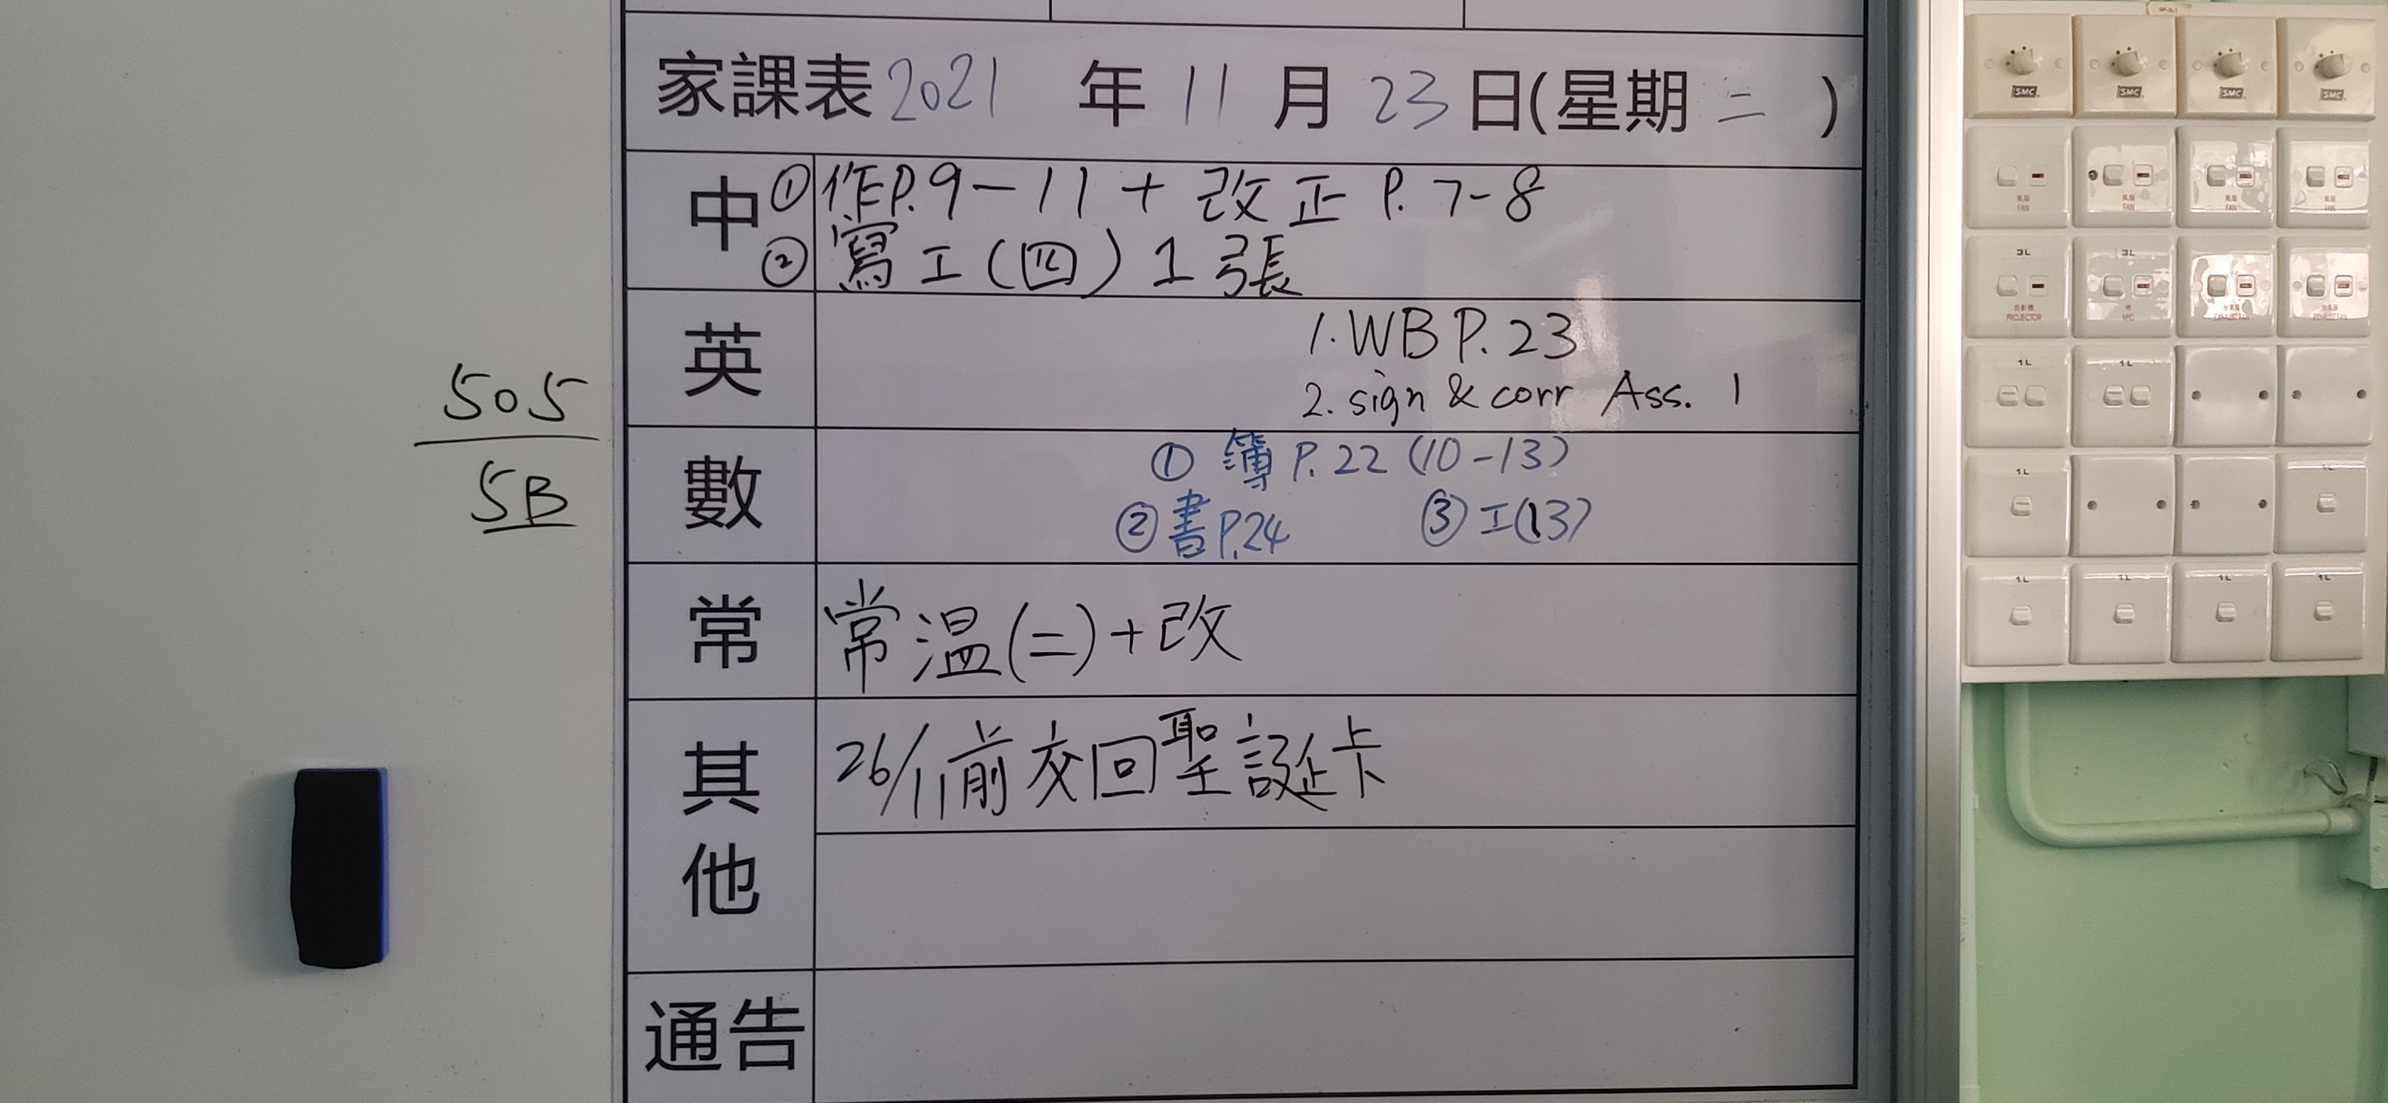 家課表 2021 年 11 月 23 日(星期 二 )
中 ① 作P.9-11 + 改正 P.7-8
② 寫工(四) 1張
英 1. WB P.23
2. sign & corr Ass. 1
505
5B
數 ① 簿 P.22 (10-13)
② 書 P.24 ③ 工(13)
常 常溫(二)+改
其他 26/11前交回聖誕卡
通告
SMC SMC SMC SMC
風扇 風扇 風扇 風扇
FAN FAN FAN FAN
3L 3L
投影機
PROJECTOR
1L 1L
1L 1L
1L 1L 1L 1L